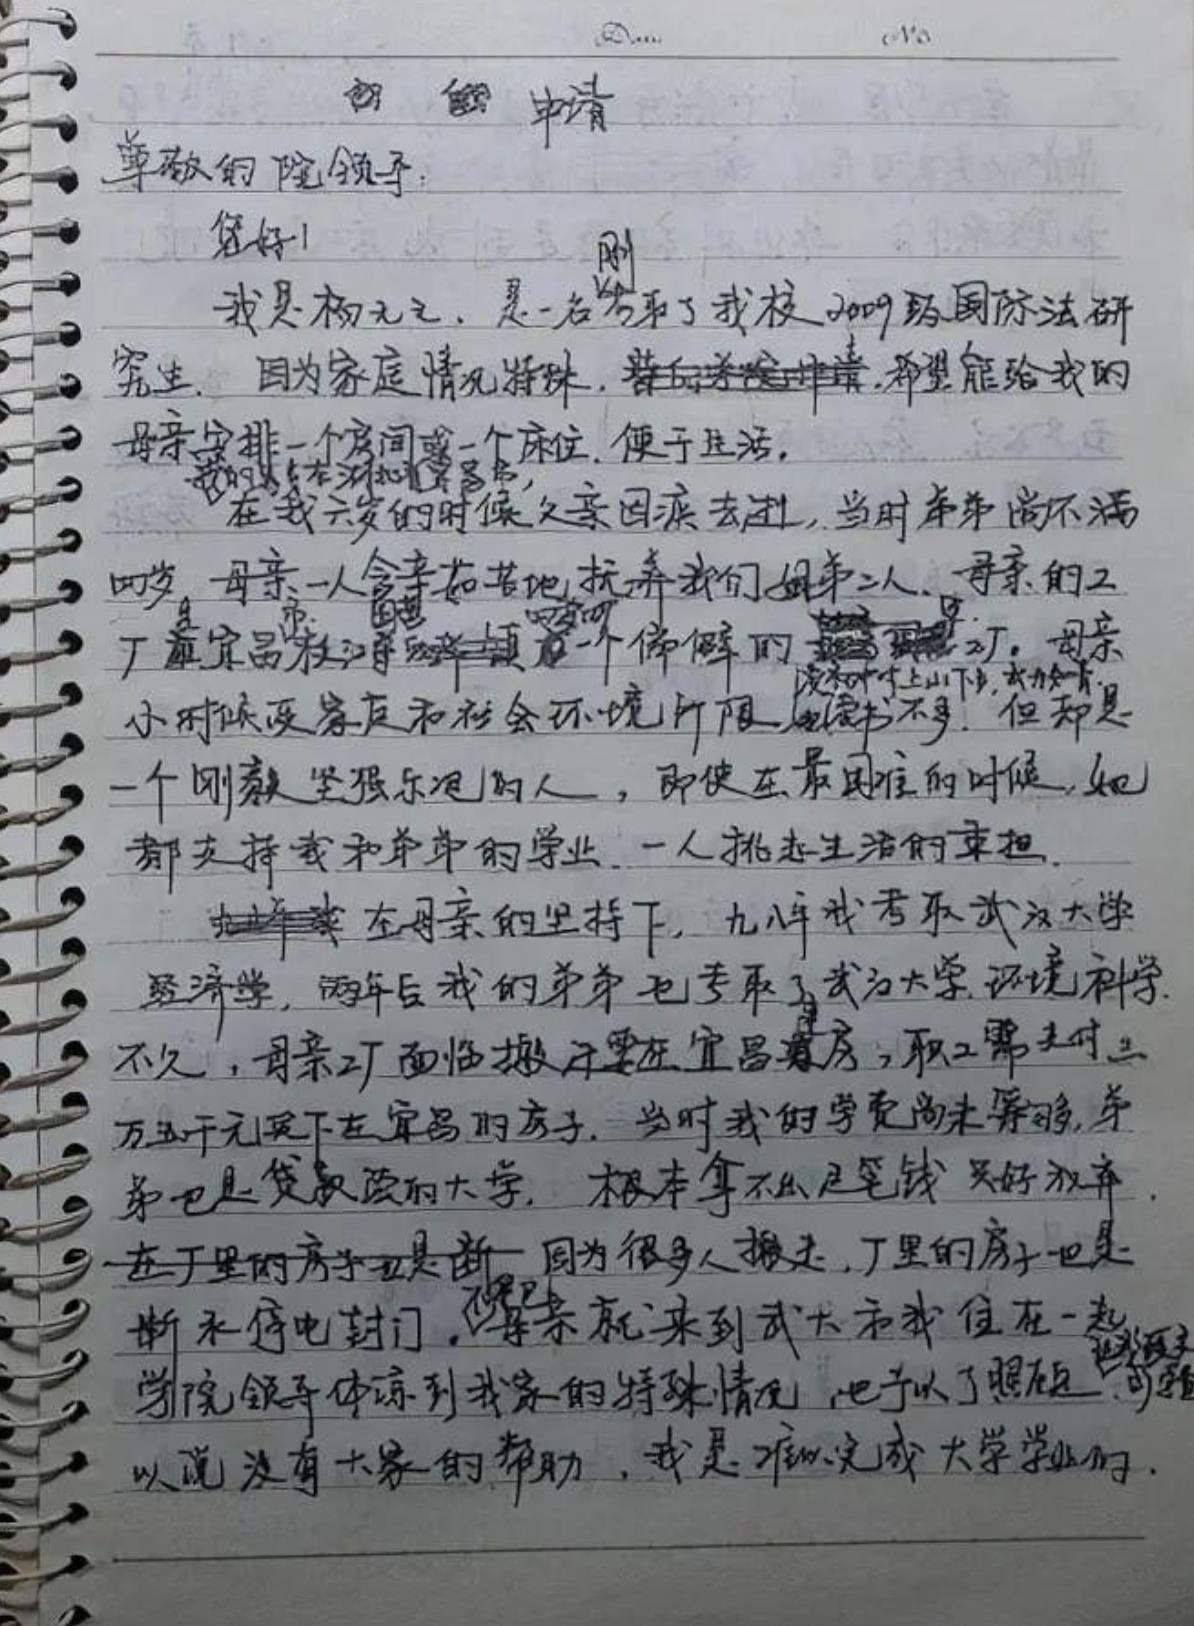 申请
尊敬的院领导：
您好！
刚
我是杨元元，是一名考取了我校2009级国际法研
究生，因为家庭情况特殊，希望能给我的
母亲安排一个房间或一个床位，便于生活。
在我六岁的时候父亲因病去逝，当时弟弟尚不满
四岁，母亲一人含辛茹苦地抚养我们姐弟二人，母亲的工
厂是宜昌市枝江一个偏僻的工厂。母亲
小时候受家庭和社会环境所限，读书不多！但却是
一个刚毅坚强乐观的人，即使在最困难的时候，她
都支持我和弟弟的学业，一人挑起生活的重担。
在母亲的坚持下，九八年我考取武汉大学
经济学，两年后我的弟弟也考取了武汉大学环境科学。
不久，母亲工厂面临搬迁要在宜昌房，职工需支付三
万五千元买下在宜昌的房子，当时我的学费尚未筹够，弟
弟也是贷款读的大学，根本拿不出足笔钱只好放弃，
在厂里的房子也是断 因为很多人搬走，厂里的房子也是
不得已
断水停电封门。母亲就来到武大和我住在一起，
学院领导体谅到我家的特殊情况，也予以了照顾，可
以说没有大家的帮助，我是难以完成大学学业的，